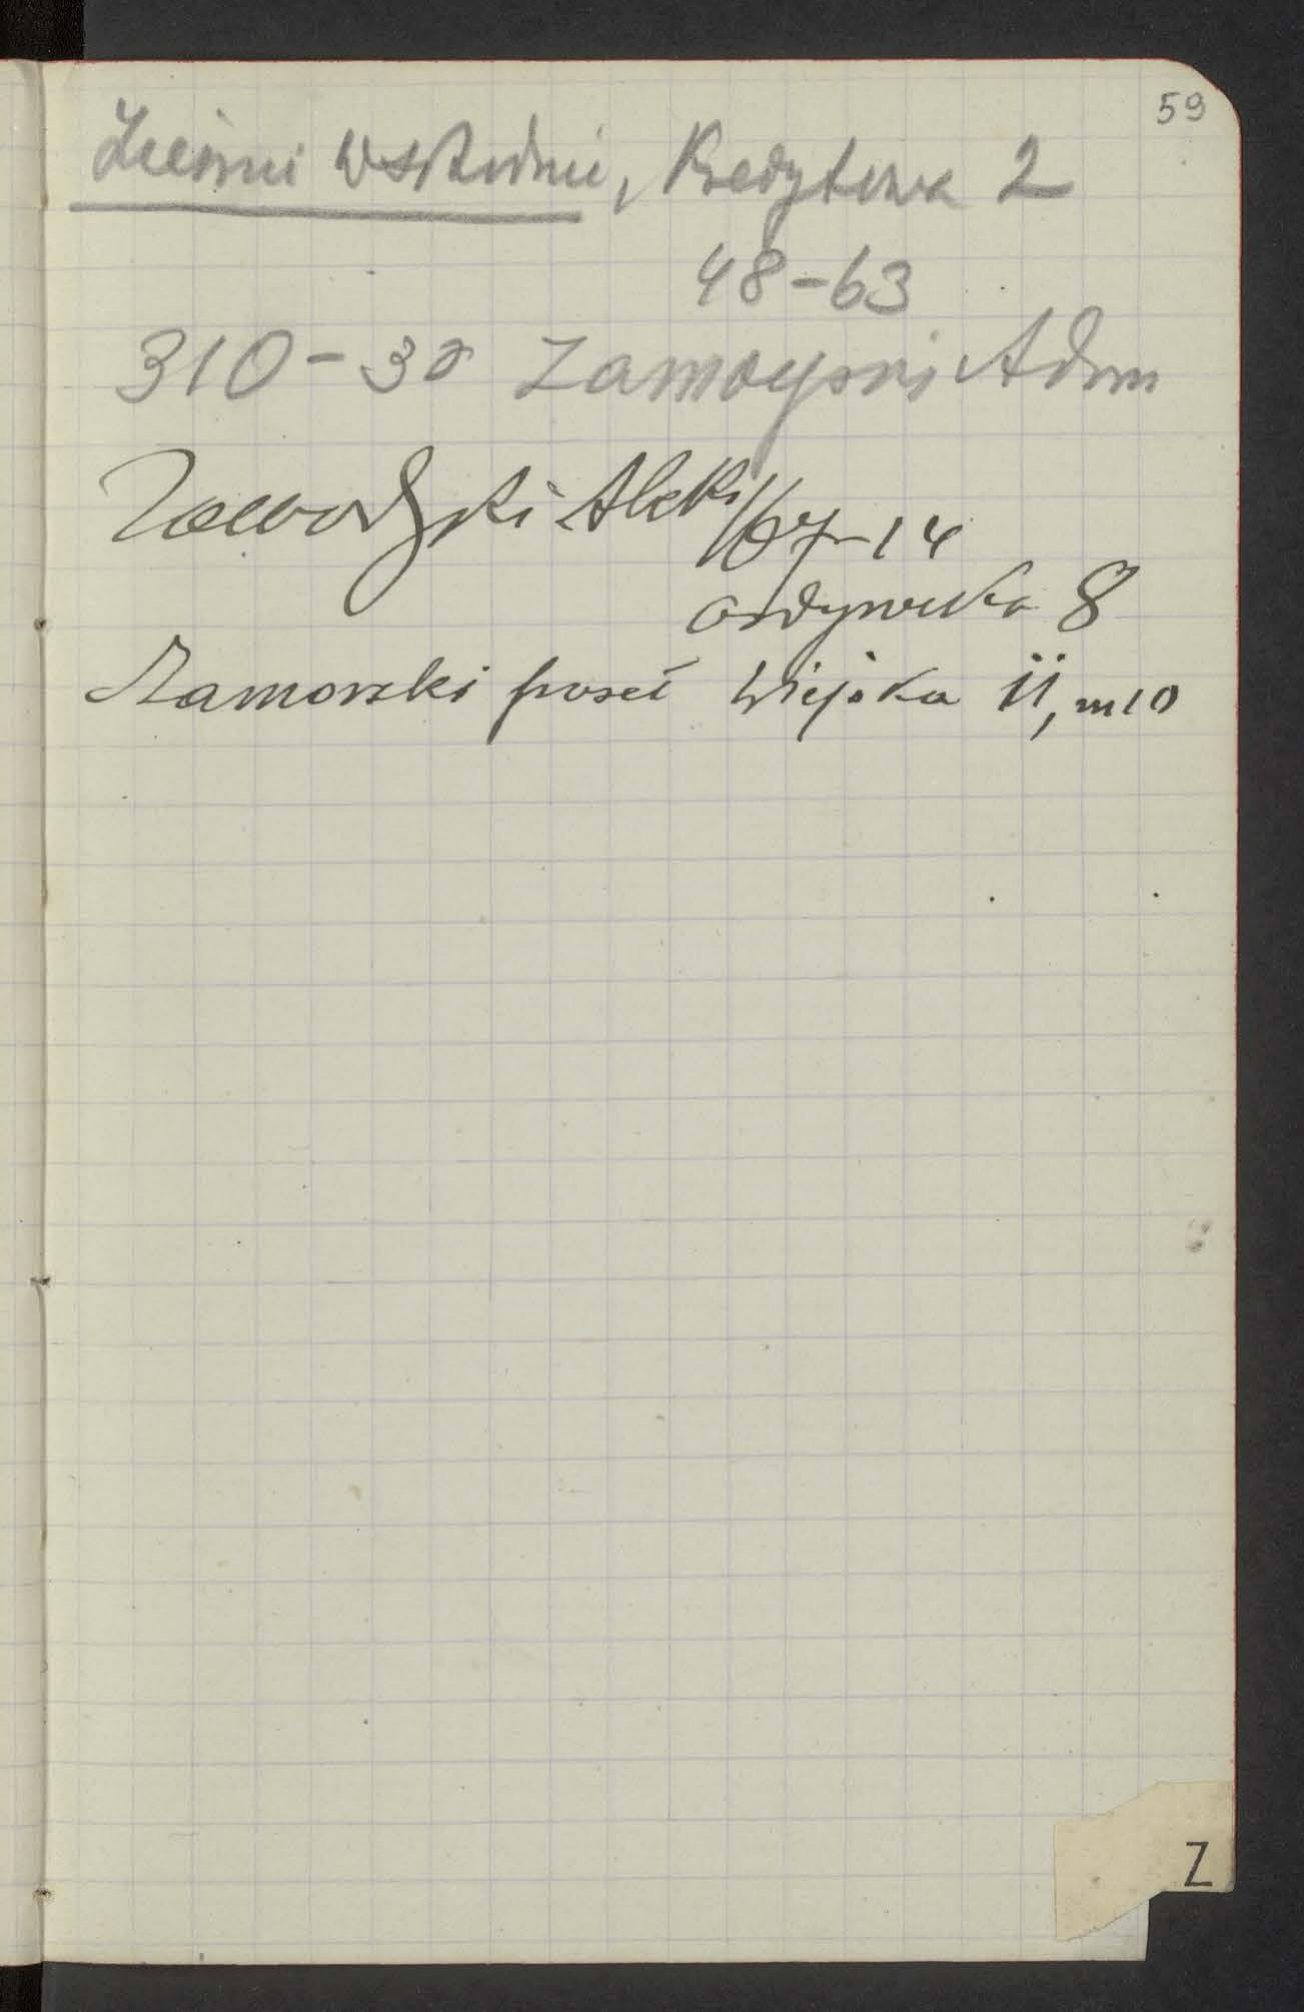 59
Ziemie Wschodnie, Kredytowa 2
48-63
310-38 Zamoyski Adam
Zawodzki Aleks
167-14
Ordynacka 8
Zamorski poseł Wiejska 11, m10
Z